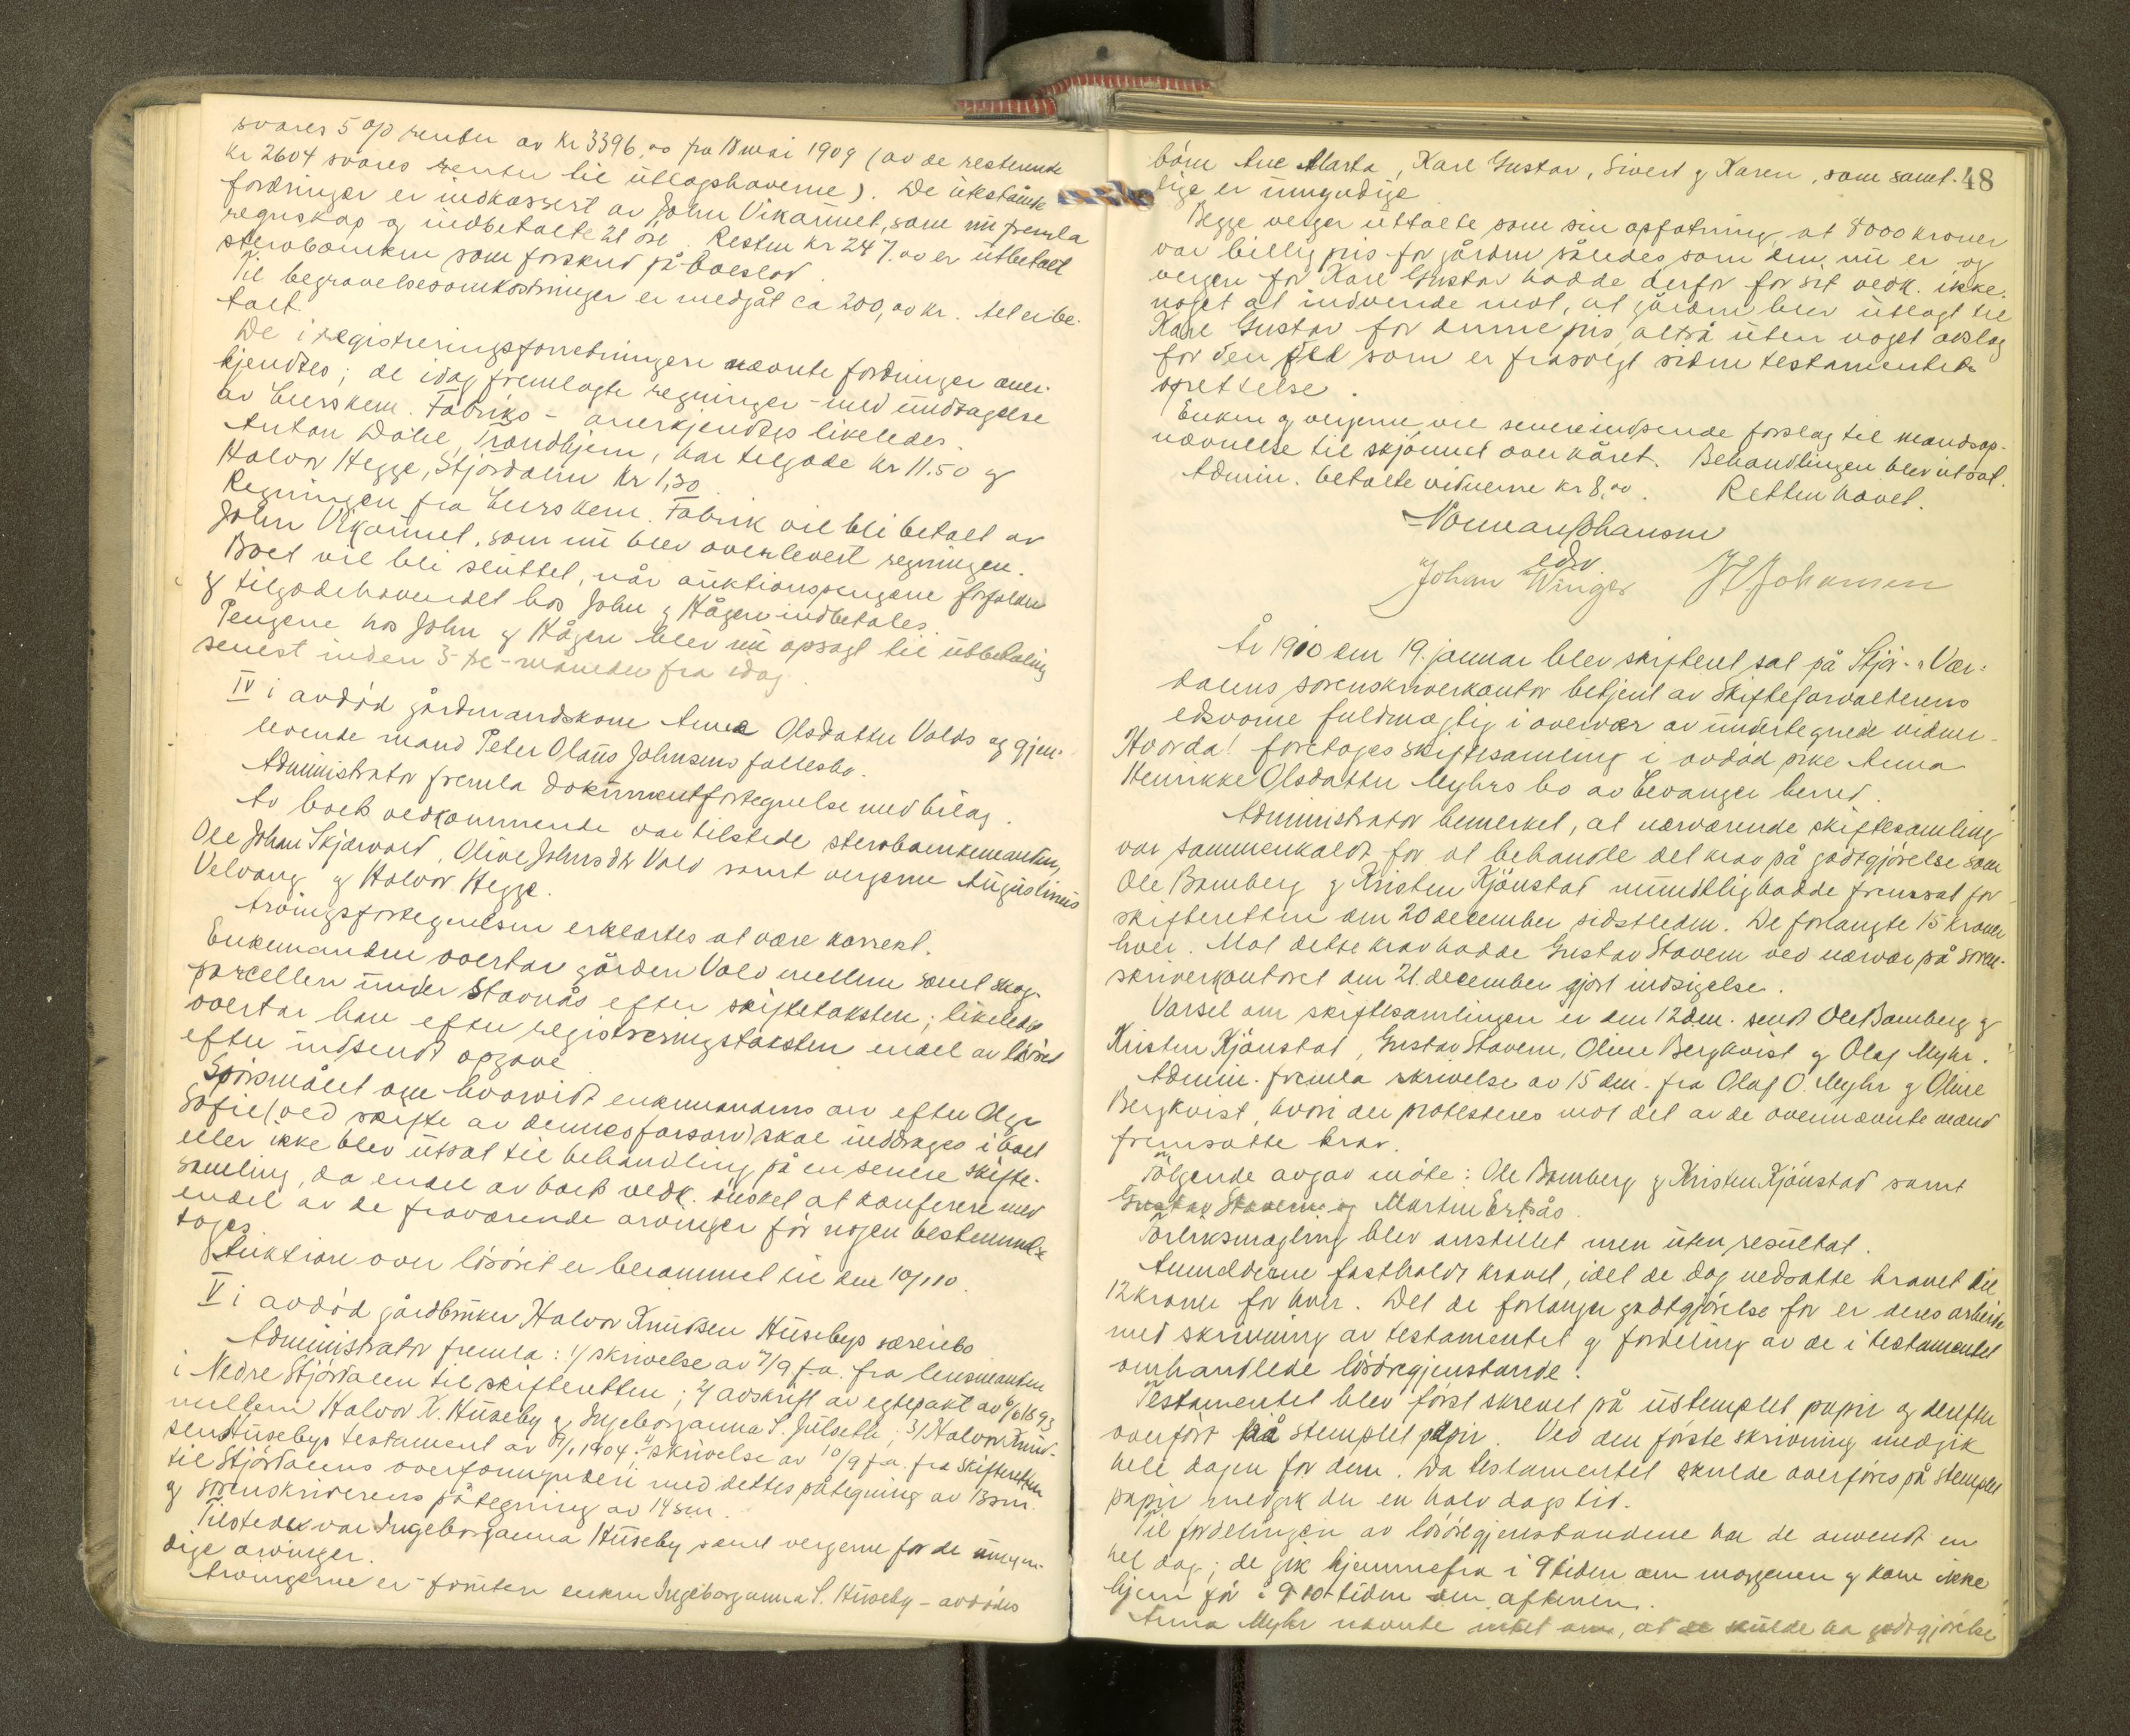 svares 5 o/o renter av kr 3396,00 fra 18 mai 1909 (av de resterende
kr 2604 svares renter til utlagshaverne). De utestående
fordringer er indkassert av John Vikannet, som nu fremla
regnskap og indbetalte 21 øre. Resten kr 247.00 er utbetalt
sterboenken som forskud på boeslod.
Til begravelsesomkostninger er medgåt ca 200,00 kr. Alt er be-
talt.
De i registreringsforretningen nævnte fordringer aner-
kjendtes; de idag fremlagte regninger - med undtagelse
av Leerskem. Fabriks - anerkjendtes likeledes.
Anton Dahl, Trondhjem, har tilgode kr 11.50 og
Halvor Hegge, Stjørdalen kr 1,30
Regningen fra Leerskem. Fabrik vil bli betalt av
John Vikannet, som nu blev overlevert regningen.
Boet vil bli sluttet, når auktionspengene forfalder
og tilgodehavendet hos John og Hågen indbetales.
Pengene hos John og Hågen blev nu opsagt til utbetaling
senest inden 3 tre - måneder fra idag.
IV i avdød gårdmandskone Anna Olsdatter Valds og gjen-
levende mand Peter Olaus Johnsens fællesbo.
Administrator fremla dokumentfortegnelse med bilag.
Av boets vedkommende var tilstede sterboenkemanden,
Ole Johan Skjærvold, Olive Johnsdtr Vald samt vergerne Augustinus
Velvang og Halvor Hegge.
Arvingsfortegnelsen erklærtes at være korrekt.
Enkemanden overtar gården Vald mellem samt skog-
parcellen under Stavnås efter skiftetaksten; likeledes
overtar han efter registreringstaksten endel av løsøret
efter indsendt opgave
Spørsmålet om hvorvidt enkemandens arv efter Olga
Sofie (ved skifte av dennes farsarv) skal inddrages i boet
eller ikke blev utsat til behandling på en senere skifte-
samling, da endel av boets vedk. ønsket at konferere med
endel av de fraværende arvinger før nogen bestemmelse
toges.
Auktion over løsøret er berammet til den 10/1 10.
V i avdød gårdbruker Halvor Knutsen Husebys særeiebo
Administrator fremla: 1/ skrivelse av 7/9 f.a. fra lensmanden
i Nedre Stjørdalen til skifteretten; 2/ avskrift av egtepakt av 6/6 1893
mellem Halvor K. Huseby og Ingeborganna S. Julseth; 3/ Halvor Knud-
sen Husebys testament av 1/1 1904; 4/ skrivelse av 10/9 f.a. fra Skifteretten
til Stjørdalens overformynderi med dettes påtegning av 13 sm.
og sorenskriverens påtegning av 14 sm.
Tilstede var Ingeborganna Huseby samt vergerne for de umyn-
dige arvinger.
Arvingerne er foruten enken Ingeborganna S. Huseby - avdødes
48
børn Ane Marta, Karl Gustav, Sivert og Karen, som samt-
lige er umyndige
Begge verger uttalte som sin opfatning, at 8000 kroner
var billig pris for gården således som den nu er og
vergen for Karl Gustav hadde derfor for sit vedk. ikke
noget at indvende mot, at gården blev utlagt til
Karl Gustav for denne pris, altså uten noget avslag
for den del som er frasolgt siden testamentets
oprettelse.
Enken og vergerne vil senere indsende forslag til mandsop-
nævnelse til skjønnet over kåret. Behandlingen blev utsat.
Admin. betalte vidnerne kr 8,00. Retten hævet.
Norman Johansen
edsv
Johan Winger J Johansen
År 1910 den 19. januar blev skifteret sat på Stjør- Vær-
dalens sorenskriverkontor betjent av Skifteforvalterens
edsvorne fuldmægtig i overvær av undertegnede vidner.
Hvorda! foretages skiftesamling i avdød pike Anna
Henrikke Olsdatter Myhrs bo av Levanger herred.
Administrator bemerket, at nærværende skiftesamling
var sammenkaldt for at behandle det krav på godtgjørelse som
Ole Bomberg og Kristen Kjønstad mundtlig hadde fremsat for
skifteretten den 20 december sidstleden. De forlangte 15 kroner
hver. Mot dette krav hadde Gustav Stavern ved nærvær på soren-
skriverkontoret den 21. december gjort indsigelse.
Varsel om skiftesamlingen er den 12 dm. sendt Ole Bamberg og
Kristen Kjønstad, Gustav Stavern, Oline Bergkvist og Olaf Myhr.
Admin. fremla skrivelse av 15 dm. fra Olaf O. Myhr og Oline
Bergkvist, hvori der protesteres mot det av de ovennævnte mænd
fremsatte krav.
Følgende avgav møte: Ole Bomberg og Kristen Kjønstad samt
Gustav Stavern og Martin Ertsås.
Forliksmægling blev anstillet men uten resultat.
Anmelderne fastholdt kravet, idet de dog nedsatte kravet til
12 kroner for hver. Det de forlanger godtgjørelse for er deres arbeide
med skrivning av testamentet og fordeling av de i testamentet
omhandlede løsøregjenstande.
Testamentet blev først skrevet på ustemplet papir og derefter
overført på stemplet papir. Ved den første skrivning medgik
hele dagen for dem. Da testamentet skulde overføres på stemplet
papir medgik der en halv dags tid.
Til fordelingen av løsøregjenstandene har de anvendt en
hel dag; de gik hjemmefra i 9 tiden om morgenen og kom ikke
hjem før i 9-10-tiden om aftenen.
Anna Myhr nævnte intet om, at de skulde ha godtgjørelse